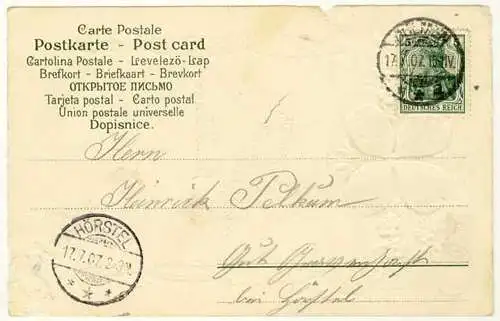 Carte Postale
Postkarte - Post card
Cartolina Postale - Levelezö-Lap
Brefkort - Briefkaart - Brevkort
ОТКРЫТОЕ ПИСЬМО
Tarjeta postal - Carto postal
Union postale universelle
Dopisnice.
17.7.07.
DEUTSCHES REICH
Herrn
Heinrich Pelkum
HÖRSTEL
17.7.07.
Gut
bei Hörstel